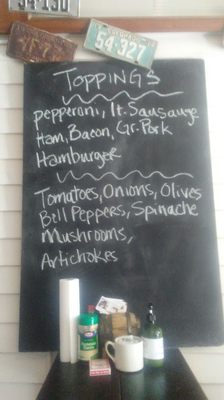 54-150
54-327
TOPPINGS
pepperoni, It. Sausauge
Ham, Bacon, Gr. Pork
Hamburger
Tomatoes, Onions, Olives
Bell Peppers, Spinache
Mushrooms,
Artichokes